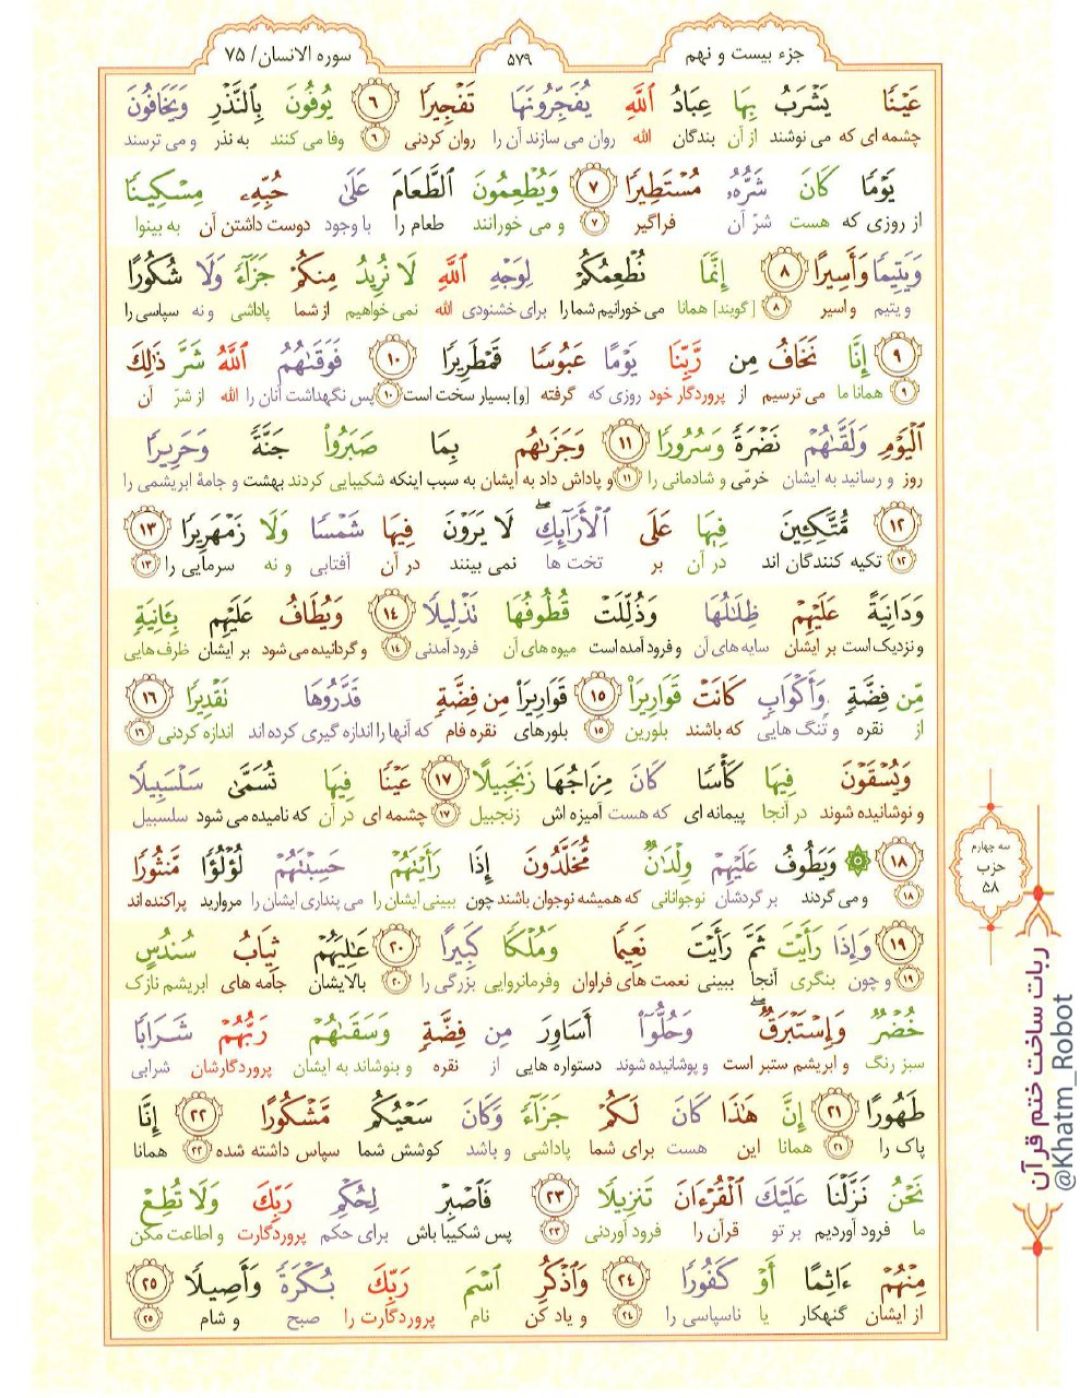 جزء بیست و نهم
۵۷۹
سوره الانسان/ ۷۵
عَيۡنٗا يَشۡرَبُ بِهَا عِبَادُ ٱللَّهِ يُفَجِّرُونَهَا تَفۡجِيرٗا ۶ يُوفُونَ بِٱلنَّذۡرِ وَيَخَافُونَ
چشمه ای که می نوشند از آن بندگان الله روان می سازند آن را روان کردنی ۶ وفا می کنند به نذر و می ترسند
يَوۡمٗا كَانَ شَرُّهُۥ مُسۡتَطِيرٗا ۷ وَيُطۡعِمُونَ ٱلطَّعَامَ عَلَىٰ حُبِّهِۦ مِسۡكِينٗا
از روزی که هست شرّ آن فراگیر ۷ و می خورانند طعام را با وجود دوست داشتن آن به بینوا
وَيَتِيمٗا وَأَسِيرًا ۸ إِنَّمَا نُطۡعِمُكُمۡ لِوَجۡهِ ٱللَّهِ لَا نُرِيدُ مِنكُمۡ جَزَآءٗ وَلَا شُكُورًا
و یتیم و اسیر ۸ [گویند] همانا می خورانیم شما را برای خشنودی الله نمی خواهیم از شما پاداشی و نه سپاسی را
۹ إِنَّا نَخَافُ مِن رَّبِّنَا يَوۡمًا عَبُوسٗا قَمۡطَرِيرٗا ۱۰ فَوَقَىٰهُمُ ٱللَّهُ شَرَّ ذَٰلِكَ
۹ همانا ما می ترسیم از پروردگار خود روزی که گرفته [و] بسیار سخت است ۱۰ پس نگهداشت آنان را الله از شرّ آن
ٱلۡيَوۡمِ وَلَقَّىٰهُمۡ نَضۡرَةٗ وَسُرُورٗا ۱۱ وَجَزَىٰهُم بِمَا صَبَرُواْ جَنَّةٗ وَحَرِيرٗا
روز و رسانید به ایشان خرمّی و شادمانی را ۱۱ و پاداش داد به ایشان به سبب اینکه شکیبایی کردند بهشت و جامۀ ابریشمی را
۱۲ مُّتَّكِـِٔينَ فِيهَا عَلَى ٱلۡأَرَآئِكِۖ لَا يَرَوۡنَ فِيهَا شَمۡسٗا وَلَا زَمۡهَرِيرٗا ۱۳
۱۲ تکیه کنندگان اند در آن بر تخت ها نمی بینند در آن آفتابی و نه سرمایی را ۱۳
وَدَانِيَةً عَلَيۡهِمۡ ظِلَٰلُهَا وَذُلِّلَتۡ قُطُوفُهَا تَذۡلِيلٗا ۱۴ وَيُطَافُ عَلَيۡهِم بِـَٔانِيَةٖ
و نزدیک است بر ایشان سایه های آن و فرود آمده است میوه های آن فرود آمدنی ۱۴ و گردانیده می شود بر ایشان ظرف هایی
مِّن فِضَّةٖ وَأَكۡوَابٖ كَانَتۡ قَوَارِيرَا۠ ۱۵ قَوَارِيرَاْ مِن فِضَّةٖ قَدَّرُوهَا تَقۡدِيرٗا ۱۶
از نقره و تنگ هایی که باشند بلورین ۱۵ بلورهای نقره فام که آنها را اندازه گیری کرده اند اندازه کردنی ۱۶
وَيُسۡقَوۡنَ فِيهَا كَأۡسٗا كَانَ مِزَاجُهَا زَنجَبِيلًا ۱۷ عَيۡنٗا فِيهَا تُسَمَّىٰ سَلۡسَبِيلٗا
و نوشانیده شوند در آنجا پیمانه ای که هست آمیزه اش زنجبیل ۱۷ چشمه ای در آن که نامیده می شود سلسبیل
۱۸ وَيَطُوفُ عَلَيۡهِمۡ وِلۡدَٰنٞ مُّخَلَّدُونَ إِذَا رَأَيۡتَهُمۡ حَسِبۡتَهُمۡ لُؤۡلُؤٗا مَّنثُورٗا
۱۸ و می گردند بر گردشان نوجوانانی که همیشه نوجوان باشند چون ببینی ایشان را می پنداری ایشان را مروارید پراکنده اند
۱۹ وَإِذَا رَأَيۡتَ ثَمَّ رَأَيۡتَ نَعِيمٗا وَمُلۡكٗا كَبِيرًا ۲۰ عَٰلِيَهُمۡ ثِيَابُ سُندُسٍ
۱۹ و چون بنگری آنجا ببینی نعمت های فراوان وفرمانروایی بزرگی را ۲۰ بالایشان جامه های ابریشم نازک
خُضۡرٞ وَإِسۡتَبۡرَقٞۖ وَحُلُّوٓاْ أَسَاوِرَ مِن فِضَّةٖ وَسَقَىٰهُمۡ رَبُّهُمۡ شَرَابٗا
سبز رنگ و ابریشم ستبر است و پوشانیده شوند دستواره هایی از نقره و بنوشاند به ایشان پروردگارشان شرابی
طَهُورًا ۲۱ إِنَّ هَٰذَا كَانَ لَكُمۡ جَزَآءٗ وَكَانَ سَعۡيُكُم مَّشۡكُورًا ۲۲ إِنَّا
پاک را ۲۱ همانا این هست برای شما پاداشی و باشد کوشش شما سپاس داشته شده ۲۲ همانا
نَحۡنُ نَزَّلۡنَا عَلَيۡكَ ٱلۡقُرۡءَانَ تَنزِيلٗا ۲۳ فَٱصۡبِرۡ لِحُكۡمِ رَبِّكَ وَلَا تُطِعۡ
ما فرود آوردیم بر تو قرآن را فرود آوردنی ۲۳ پس شکیبا باش برای حکم پروردگارت و اطاعت مکن
مِنۡهُمۡ ءَاثِمًا أَوۡ كَفُورٗا ۲۴ وَٱذۡكُرِ ٱسۡمَ رَبِّكَ بُكۡرَةٗ وَأَصِيلٗا ۲۵
از ایشان گنهکار یا ناسپاسی را ۲۴ و یاد کن نام پروردگارت را صبح و شام ۲۵
سه چهارم
حزب
۵۸
ربات ساخت ختم قرآن
@Khatm_Robot